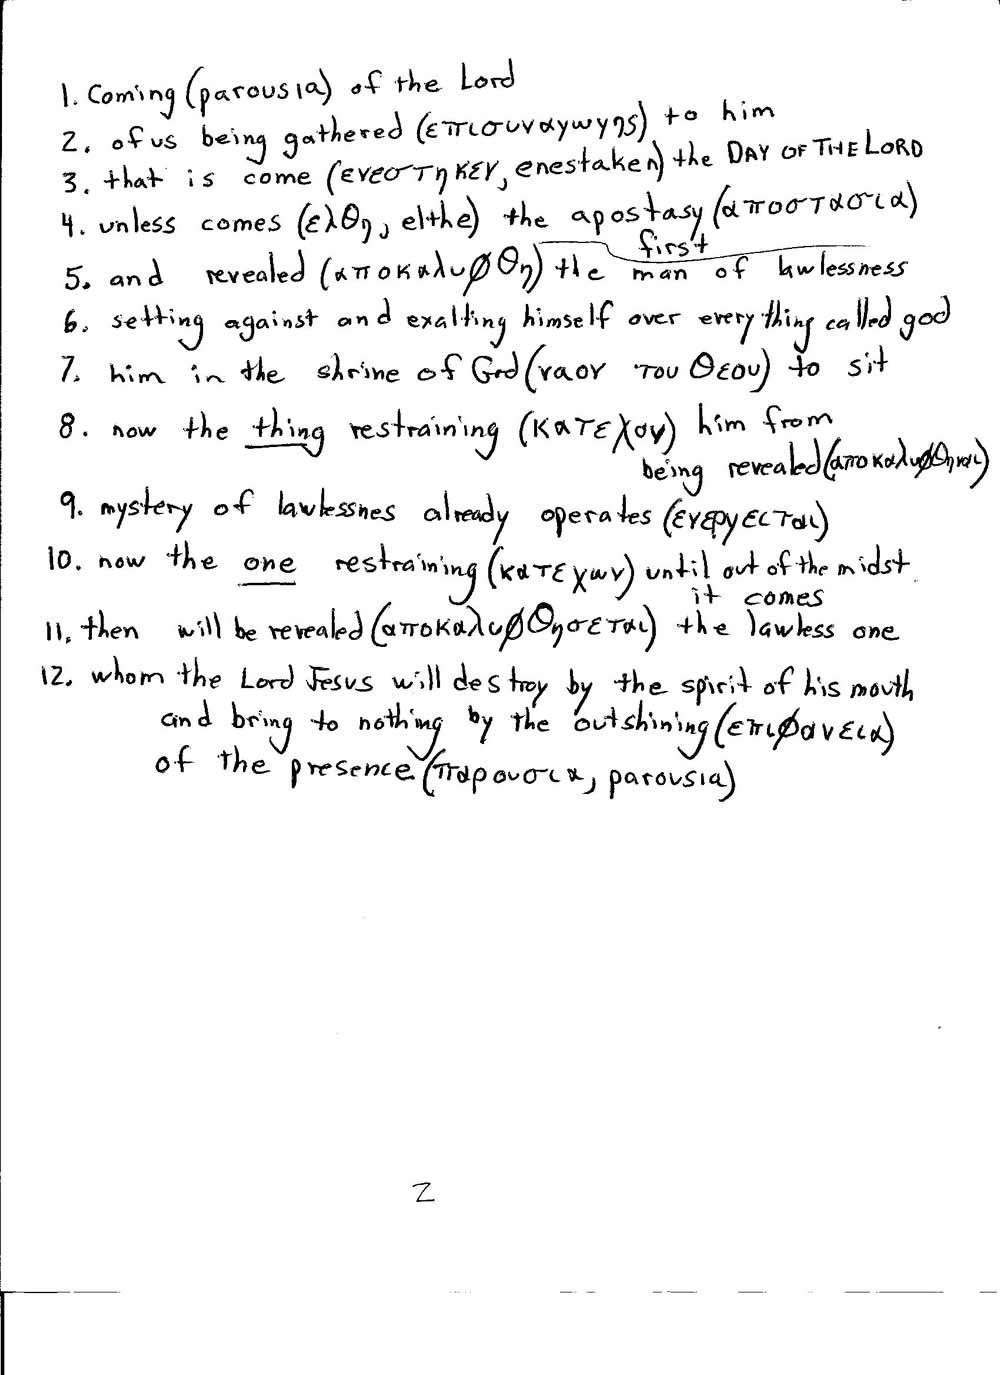 1. Coming (parousia) of the Lord
2. of us being gathered (επισυναγωγης) to him
3. that is come (ενεστηκεν, enestaken) the DAY OF THE LORD
4. unless comes (ελθη, elthe) the apostasy (αποστασια)
first
5. and revealed (αποκαλυφθη) the man of lawlessness
6. setting against and exalting himself over everything called god
7. him in the shrine of God (ναον του θεου) to sit
8. now the thing restraining (κατεχον) him from
being revealed (αποκαλυφθηναι)
9. mystery of lawlessnes already operates (ενεργειται)
10. now the one restraining (κατεχων) until out of the midst
it comes
11. then will be revealed (αποκαλυφθησεται) the lawless one
12. whom the Lord Jesus will destroy by the spirit of his mouth
and bring to nothing by the outshining (επιφανεια)
of the presence (παρουσια, parousia)
2